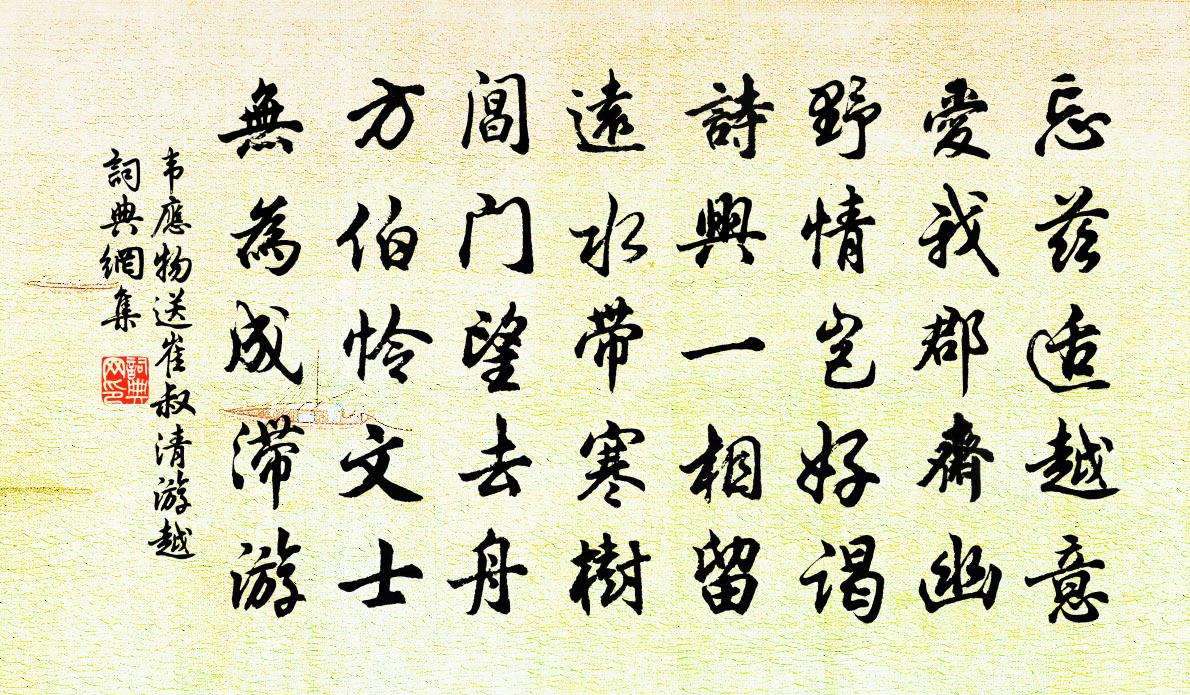 忘茲适越意
愛我郡齋幽
野情豈好謁
詩興一相留
遠水带寒樹
閶门望去舟
方伯怜文士
無為成滞游
韦應物送崔叔清游越
詞典網集